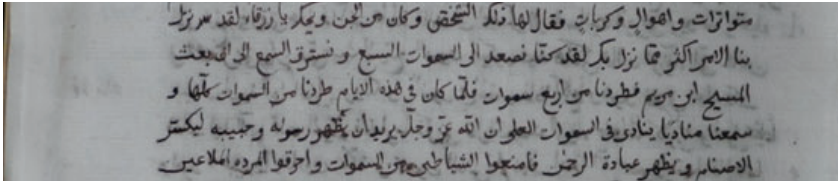 متواترات واهوال وكربات فقال لها ذلك الشخص وكان من الجن ويحك يا زرقاء لقد نزل
بنا الامر اكثر مما نزل بكم لقد كنا نصعد الى السموات السبع و نسترق السمع الى ان بعث
المسيح ابن مريم فطردنا من اربع سموات فلما كان في هذه الايام طردنا من السموات كلها و
سمعنا مناديا ينادى فى السموات العلو ان الله عز وجل يريد أن يظهر رسوله وحبيبه ليكسر
الاصنام ويظهر عبادة الرحمن فامنعوا الشياطين من السموات واحرقوا المرده الملاعين